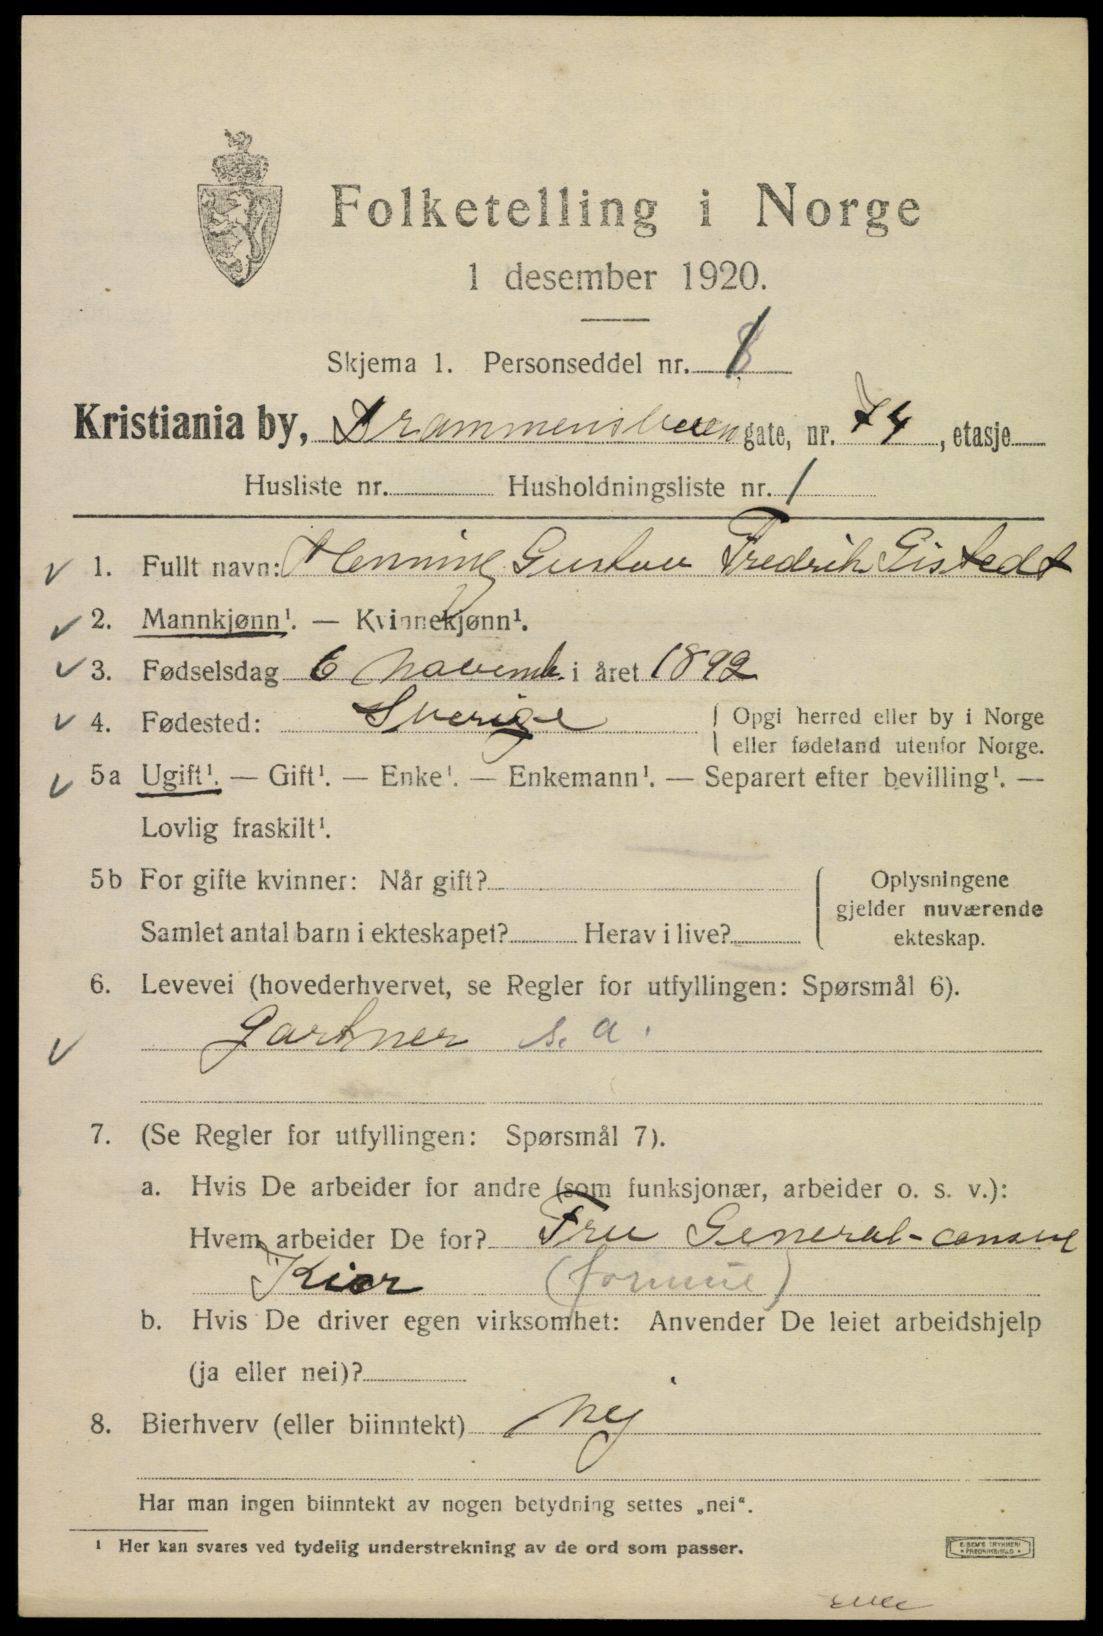 Folketelling i Norge
1 desember 1920.
Skjema 1. Personseddel nr. 1
Kristiania by, Drammensveien gate, nr. 74, etasje
Husliste nr. Husholdningsliste nr. 1
1. Fullt navn: Henning Gustav Fredrik Gistedt
2. Mannkjønn¹. — Kvinnekjønn¹.
3. Fødselsdag 6 Novemb. i året 1892
4. Fødested: Sverige
Opgi herred eller by i Norge
eller fødeland utenfor Norge.
5a Ugift¹. — Gift¹. — Enke¹. — Enkemann¹. — Separert efter bevilling¹. —
Lovlig fraskilt¹.
5b For gifte kvinner: Når gift?
Samlet antal barn i ekteskapet? Herav i live?
Oplysningene
gjelder nuværende
ekteskap.
6. Levevei (hovederhvervet, se Regler for utfyllingen: Spørsmål 6).
Gartner s. a.
7. (Se Regler for utfyllingen: Spørsmål 7).
a. Hvis De arbeider for andre (som funksjonær, arbeider o. s. v.):
Hvem arbeider De for? Fru General-consul
Kiær (formue)
b. Hvis De driver egen virksomhet: Anvender De leiet arbeidshjelp
(ja eller nei)?
8. Bierhverv (eller biinntekt) Nej
Har man ingen biinntekt av nogen betydning settes „nei“.
¹ Her kan svares ved tydelig understrekning av de ord som passer.
E. SEM'S TRYKKERI
FREDRIKSHALD